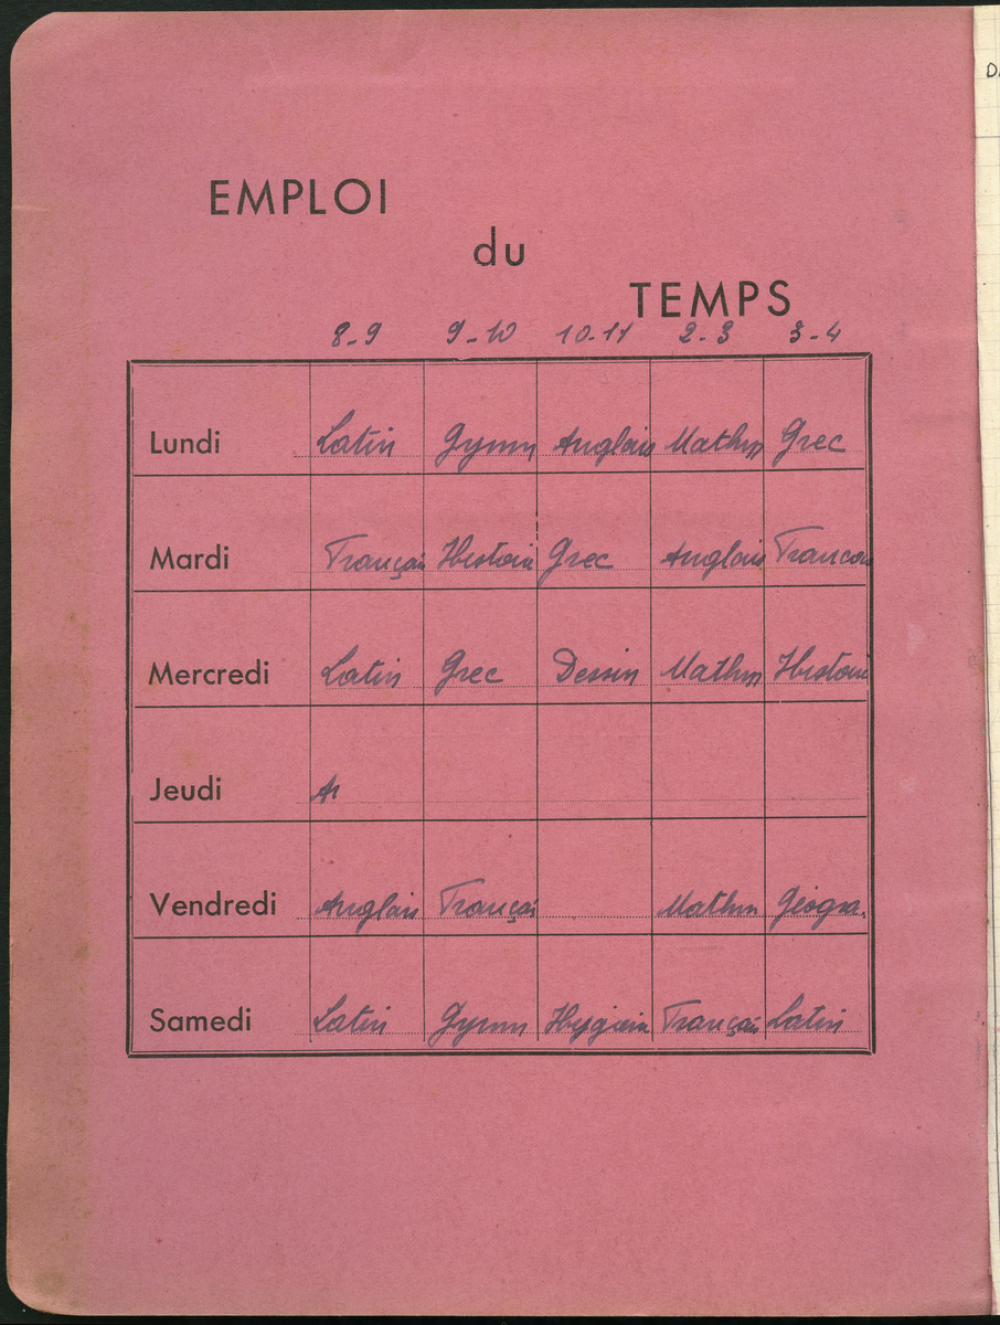 EMPLOI
du
TEMPS
8-9 9-10 10-11 2-3 3-4
Lundi Latin Gymn Anglais Mathm Grec
Mardi Françai Histoir Grec Anglais Francais
Mercredi Latin Grec Dessin Mathm Histoir
Jeudi A
Vendredi Anglais Françai Mathm Géogra.
Samedi Latin Gymn Hygiein Françai Latin